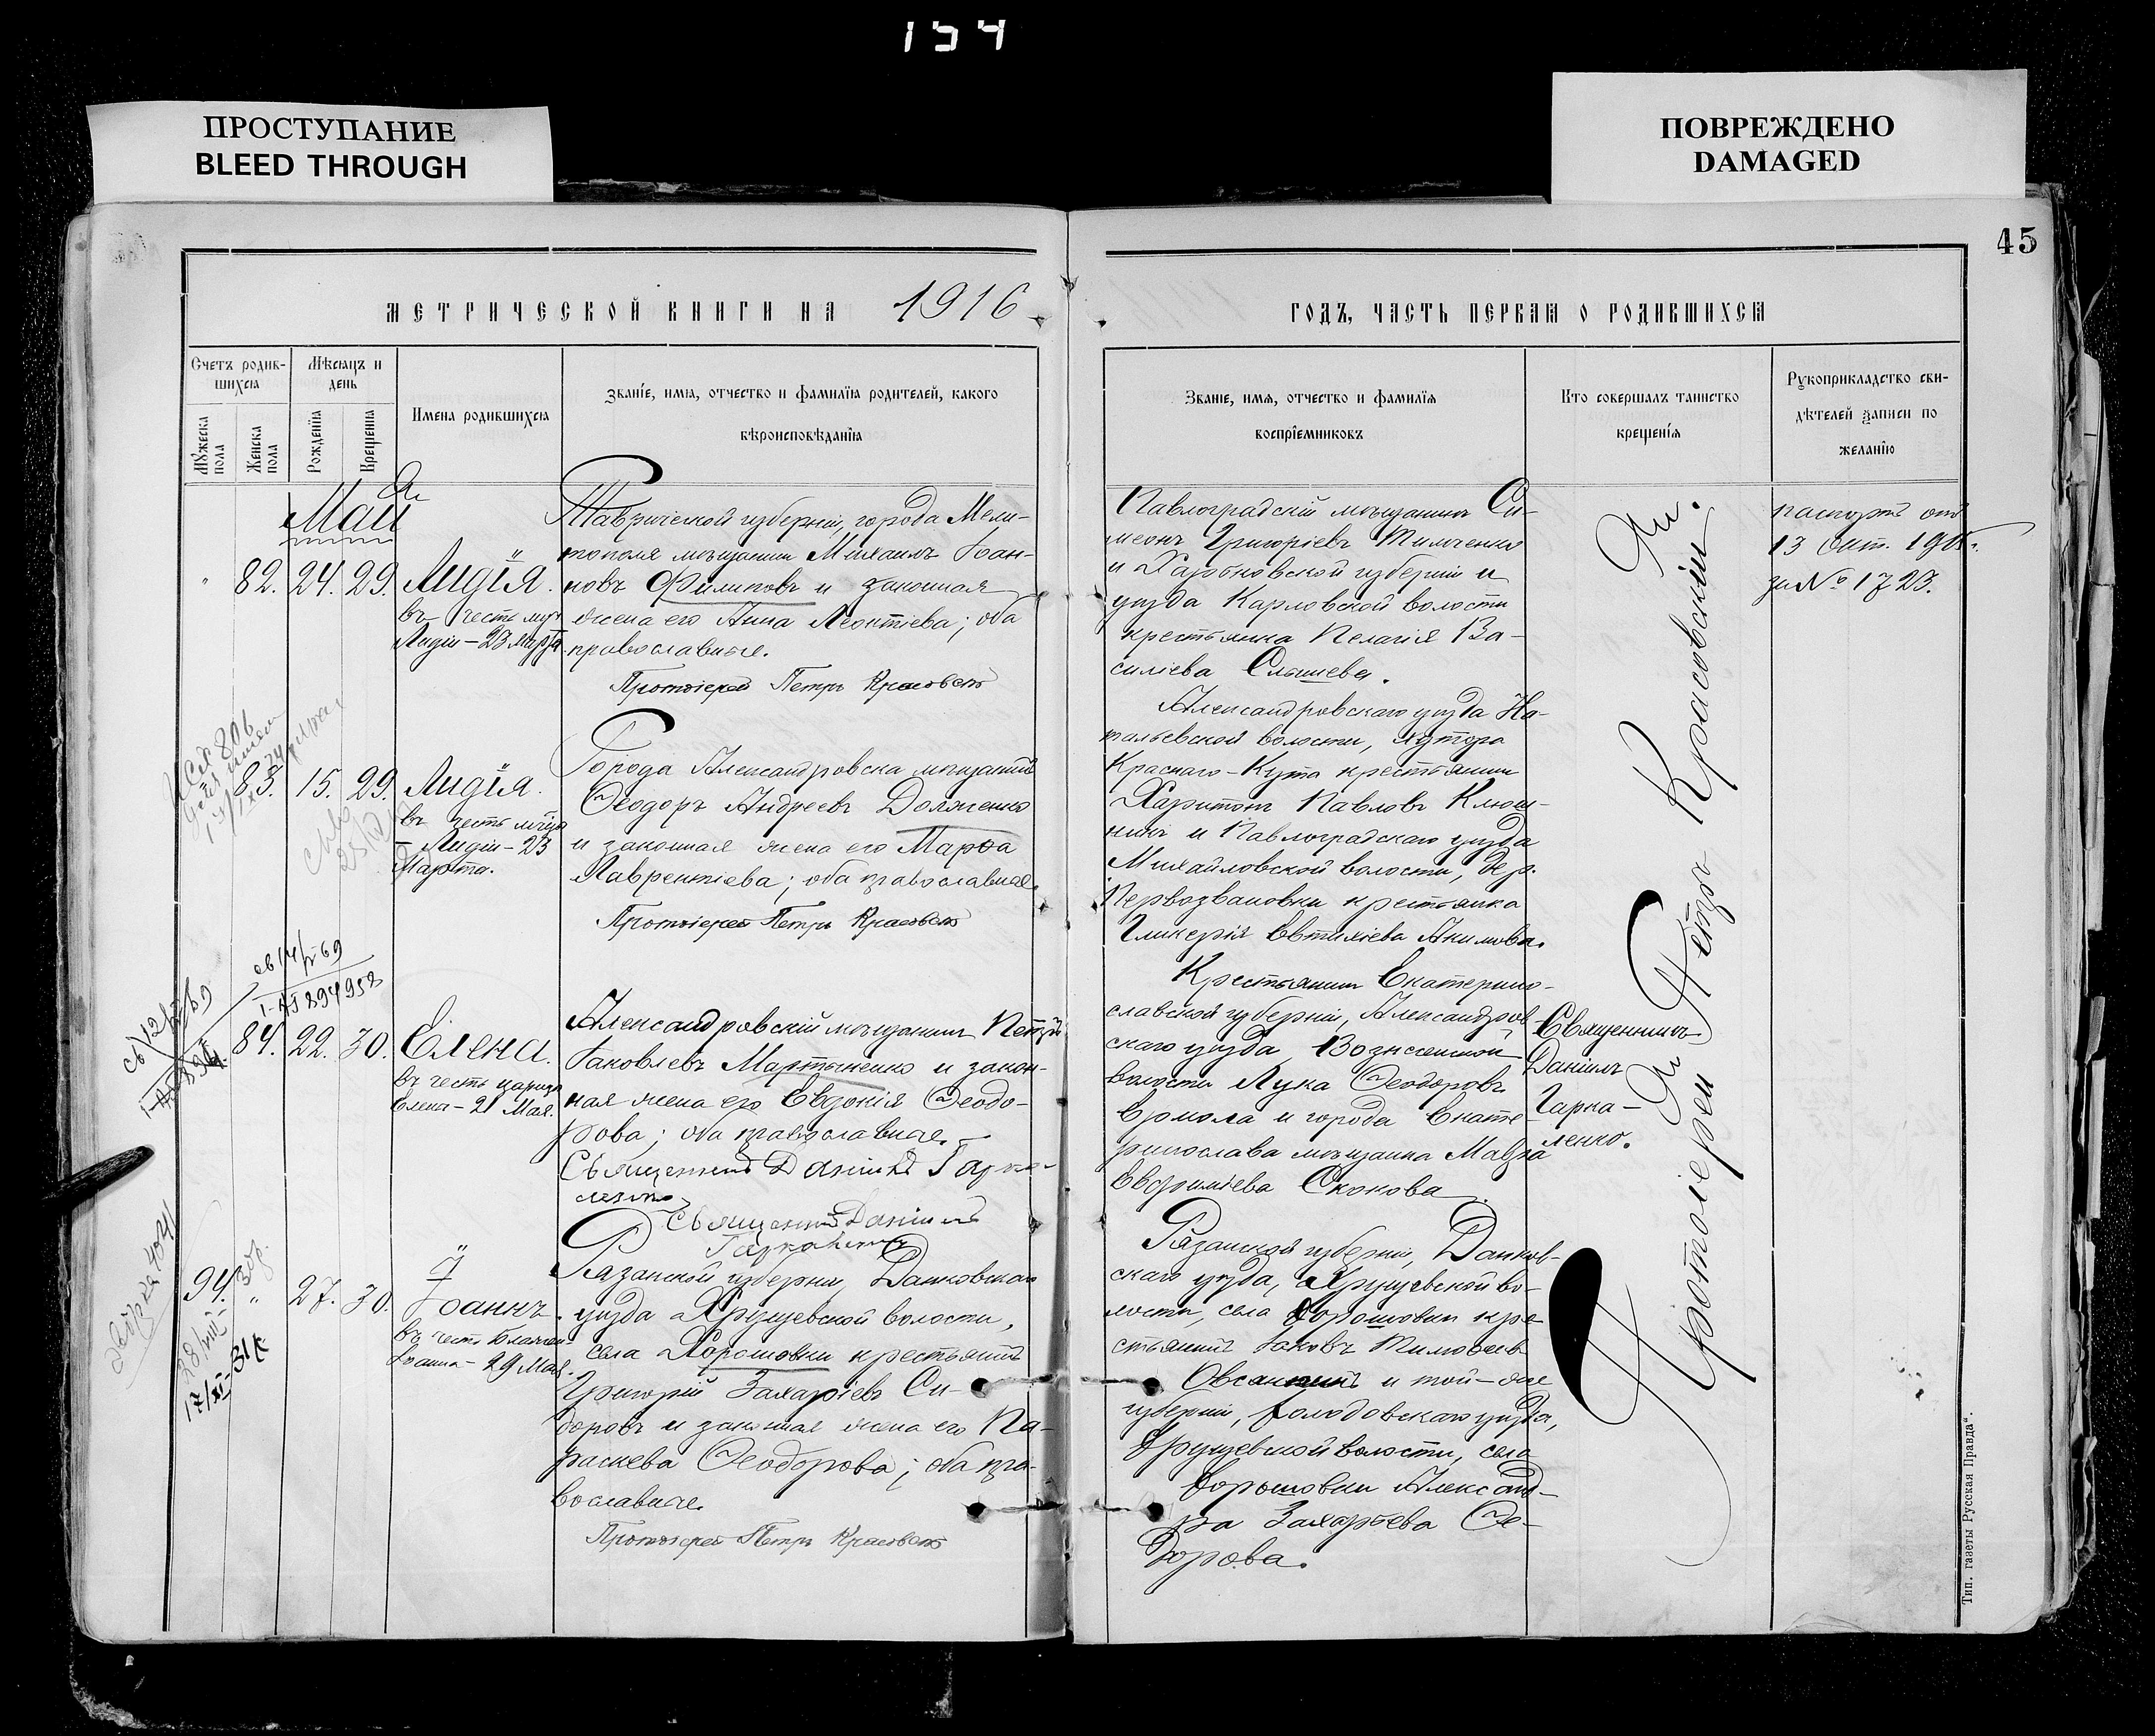 154
ПРОСТУПАНИЕ
BLEED THROUGH
ПОВРЕЖДЕНО
DAMAGED
45
МЕТРИЧЕСКОЙ КНИГИ НА 1916
ГОДЪ, ЧАСТЬ ПЕРВАЯ О РОДИВШИХСЯ
Счетъ родив-
шихся
Мѣсяцъ и
день
Мужеска
пола
Женска
пола
Рожденія
Крещенія
Имена родившихся
Званіе, имя, отчество и фамилія родителей, какого
вѣроисповѣданія
Званіе, имя, отчество и фамилія
воспріемниковъ
Кто совершалъ таинство
крещенія
Рукоприкладство сви-
дѣтелей записи по
желанію
Май
" 82. 24. 29. Лидія.
въ честь муч.
Лидіи – 23 Марта
Таврической губерніи, города Мели-
тополя мѣщанинъ Михаилъ Іоан-
новъ Филиповъ и законная
жена его Анна Леонтіева; оба
православные.
Протоіерей Петръ Красовскій
Павлоградскій мѣщанинъ Си-
меонъ Григоріевъ Тимченко
и Харьковской губерніи и
уѣзда Карловской волости
крестьянка Пелагія Ва-
силіева
паспортъ отъ
13 Окт.
за № 1723.
83. 15. 29. Лидія.
въ честь мчцы
Лидіи – 23
Марта.
Города Александровска мѣщанинъ
Ѳеодоръ Андреевъ Долженко
и законная жена его Марѳа
Лаврентіева; оба православные.
Протоіерей Петръ Красовскій
Александровскаго уѣзда На-
тальевской волости, хутора
Краснаго-Кута крестьянинъ
Харитонъ Павловъ Клюш-
никъ и Павлоградскаго уѣзда
Михайловской волости, дер.
Первозвановки крестьянка
Гликерія Евтихіева Акимова.
84. 22. 30. Елена.
въ честь царицы
Елены – 21 Мая.
Александровскій мѣщанинъ Петръ
Іаковлевъ Мартыненко и закон-
ная жена его Евдокія Ѳеодо-
рова; оба православные.
Священникъ Даніилъ Гарка-
ленко
Священникъ Даніилъ
Гаркаленко
Крестьянинъ Екатерино-
славской губерніи, Александров-
скаго уѣзда, Вознесенской
волости Лука Ѳеодоровъ
Ермола и города Екате-
ринослава мѣщанка Мавра
Евфиміева Скокова.
Священникъ
Даніилъ
Гарка-
ленко.
94. " 27. 30. Іоаннъ.
въ честь блажен.
Іоанна – 29 Мая.
Рязанской губерніи, Данковскаго
уѣзда Хрущевской волости,
села Хорошовки крестьянинъ
Григорій Захаріевъ Си-
доровъ и законная жена его Па-
раскева Ѳеодорова; оба пра-
вославные.
Протоіерей Петръ Красовскій
Рязанской губерніи, Данков-
скаго уѣзда, Хрущевской во-
лости, села Хорошовки кре-
стьянинъ Іаковъ Тимоѳеевъ
и той-же
губерніи, уѣзда,
Хрущевской волости, села
Хорошовки Александ-
ра Захарьева
Протоіерей Петръ Красовскій
Тип. газеты Русская Правда".